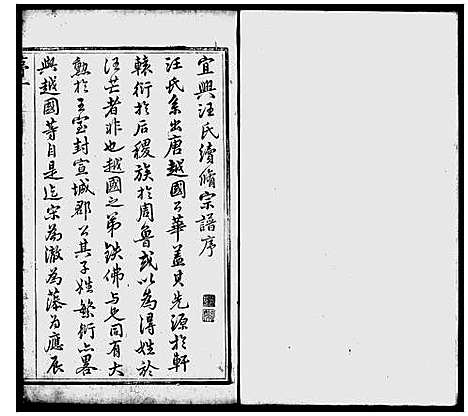 宜興汪氏續脩宗譜序
汪氏系出唐越國公華蓋其先源於軒
轅衍於后稷族於周魯或以為得姓於
汪芒者非也越國之弟鉄佛与之同有大
勲於王室封宣城郡公其子姓繁衍亦畧
與越國等自是迄宋為澈為藻為應辰
序一